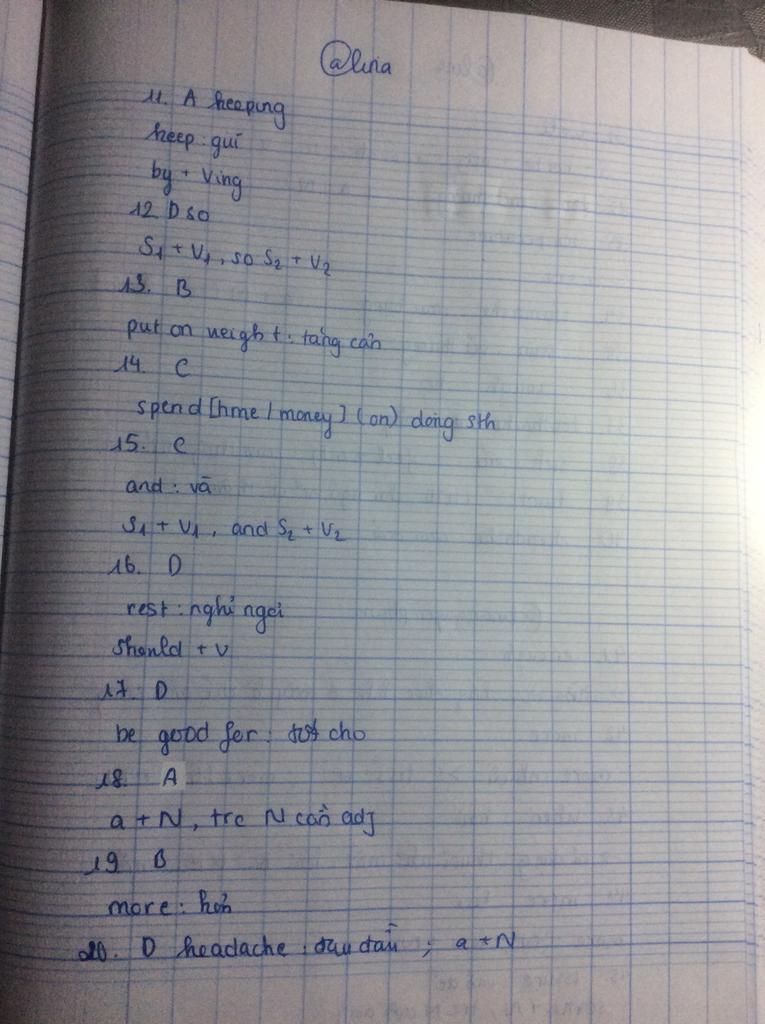 @lina
11. A keeping
keep : giữ
by + Ving
12 D so
S1 + V1, so S2 + V2
13. B
put on weight : tăng cân
14. C
spend [time / money] (on) doing sth
15. C
and : và
S1 + V1, and S2 + V2
16. D
rest : nghỉ ngơi
should + V
17. D
be good for : tốt cho
18. A
a + N, trc N cần adj
19 B
more : hơn
20. D headache : đau đầu ; a + N